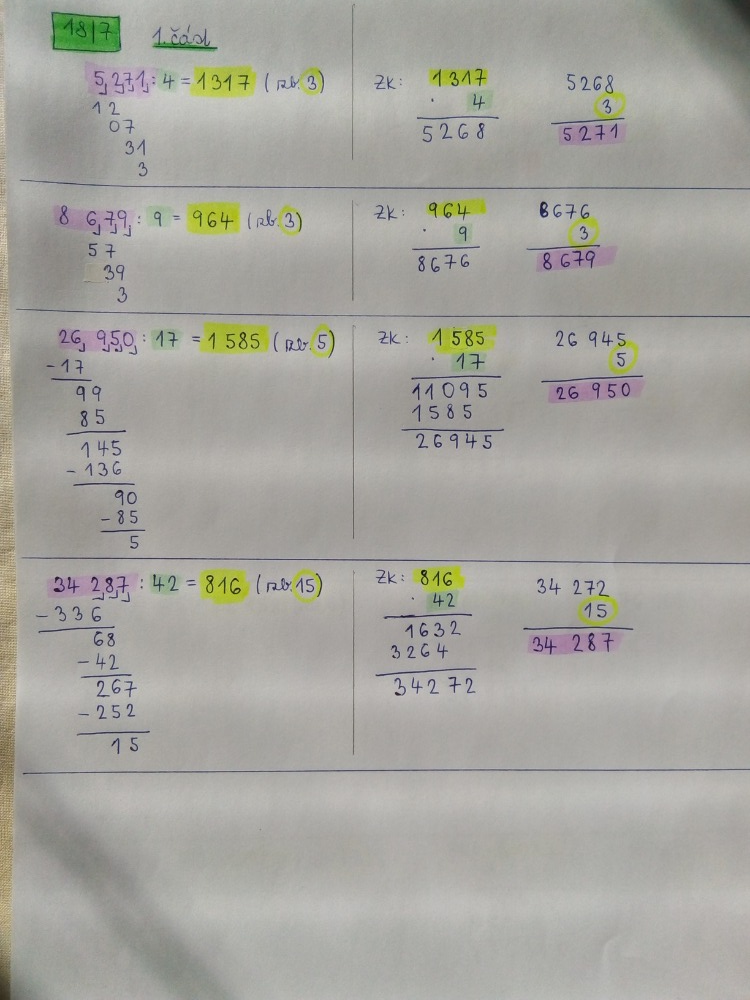 18/7 1. část
5 271 : 4 = 1317 (zb. 3)
12
07
31
3
Zk: 1317
· 4
5268
5268
3
5271
8 679 : 9 = 964 (zb. 3)
57
39
3
Zk: 964
· 9
8676
8676
3
8679
26 950 : 17 = 1 585 (zb. 5)
-17
99
85
145
-136
90
-85
5
Zk: 1 585
· 17
11095
1585
26945
26 945
5
26 950
34 287 : 42 = 816 (zb. 15)
-336
68
-42
267
-252
15
Zk: 816
· 42
1632
3264
34272
34 272
15
34 287